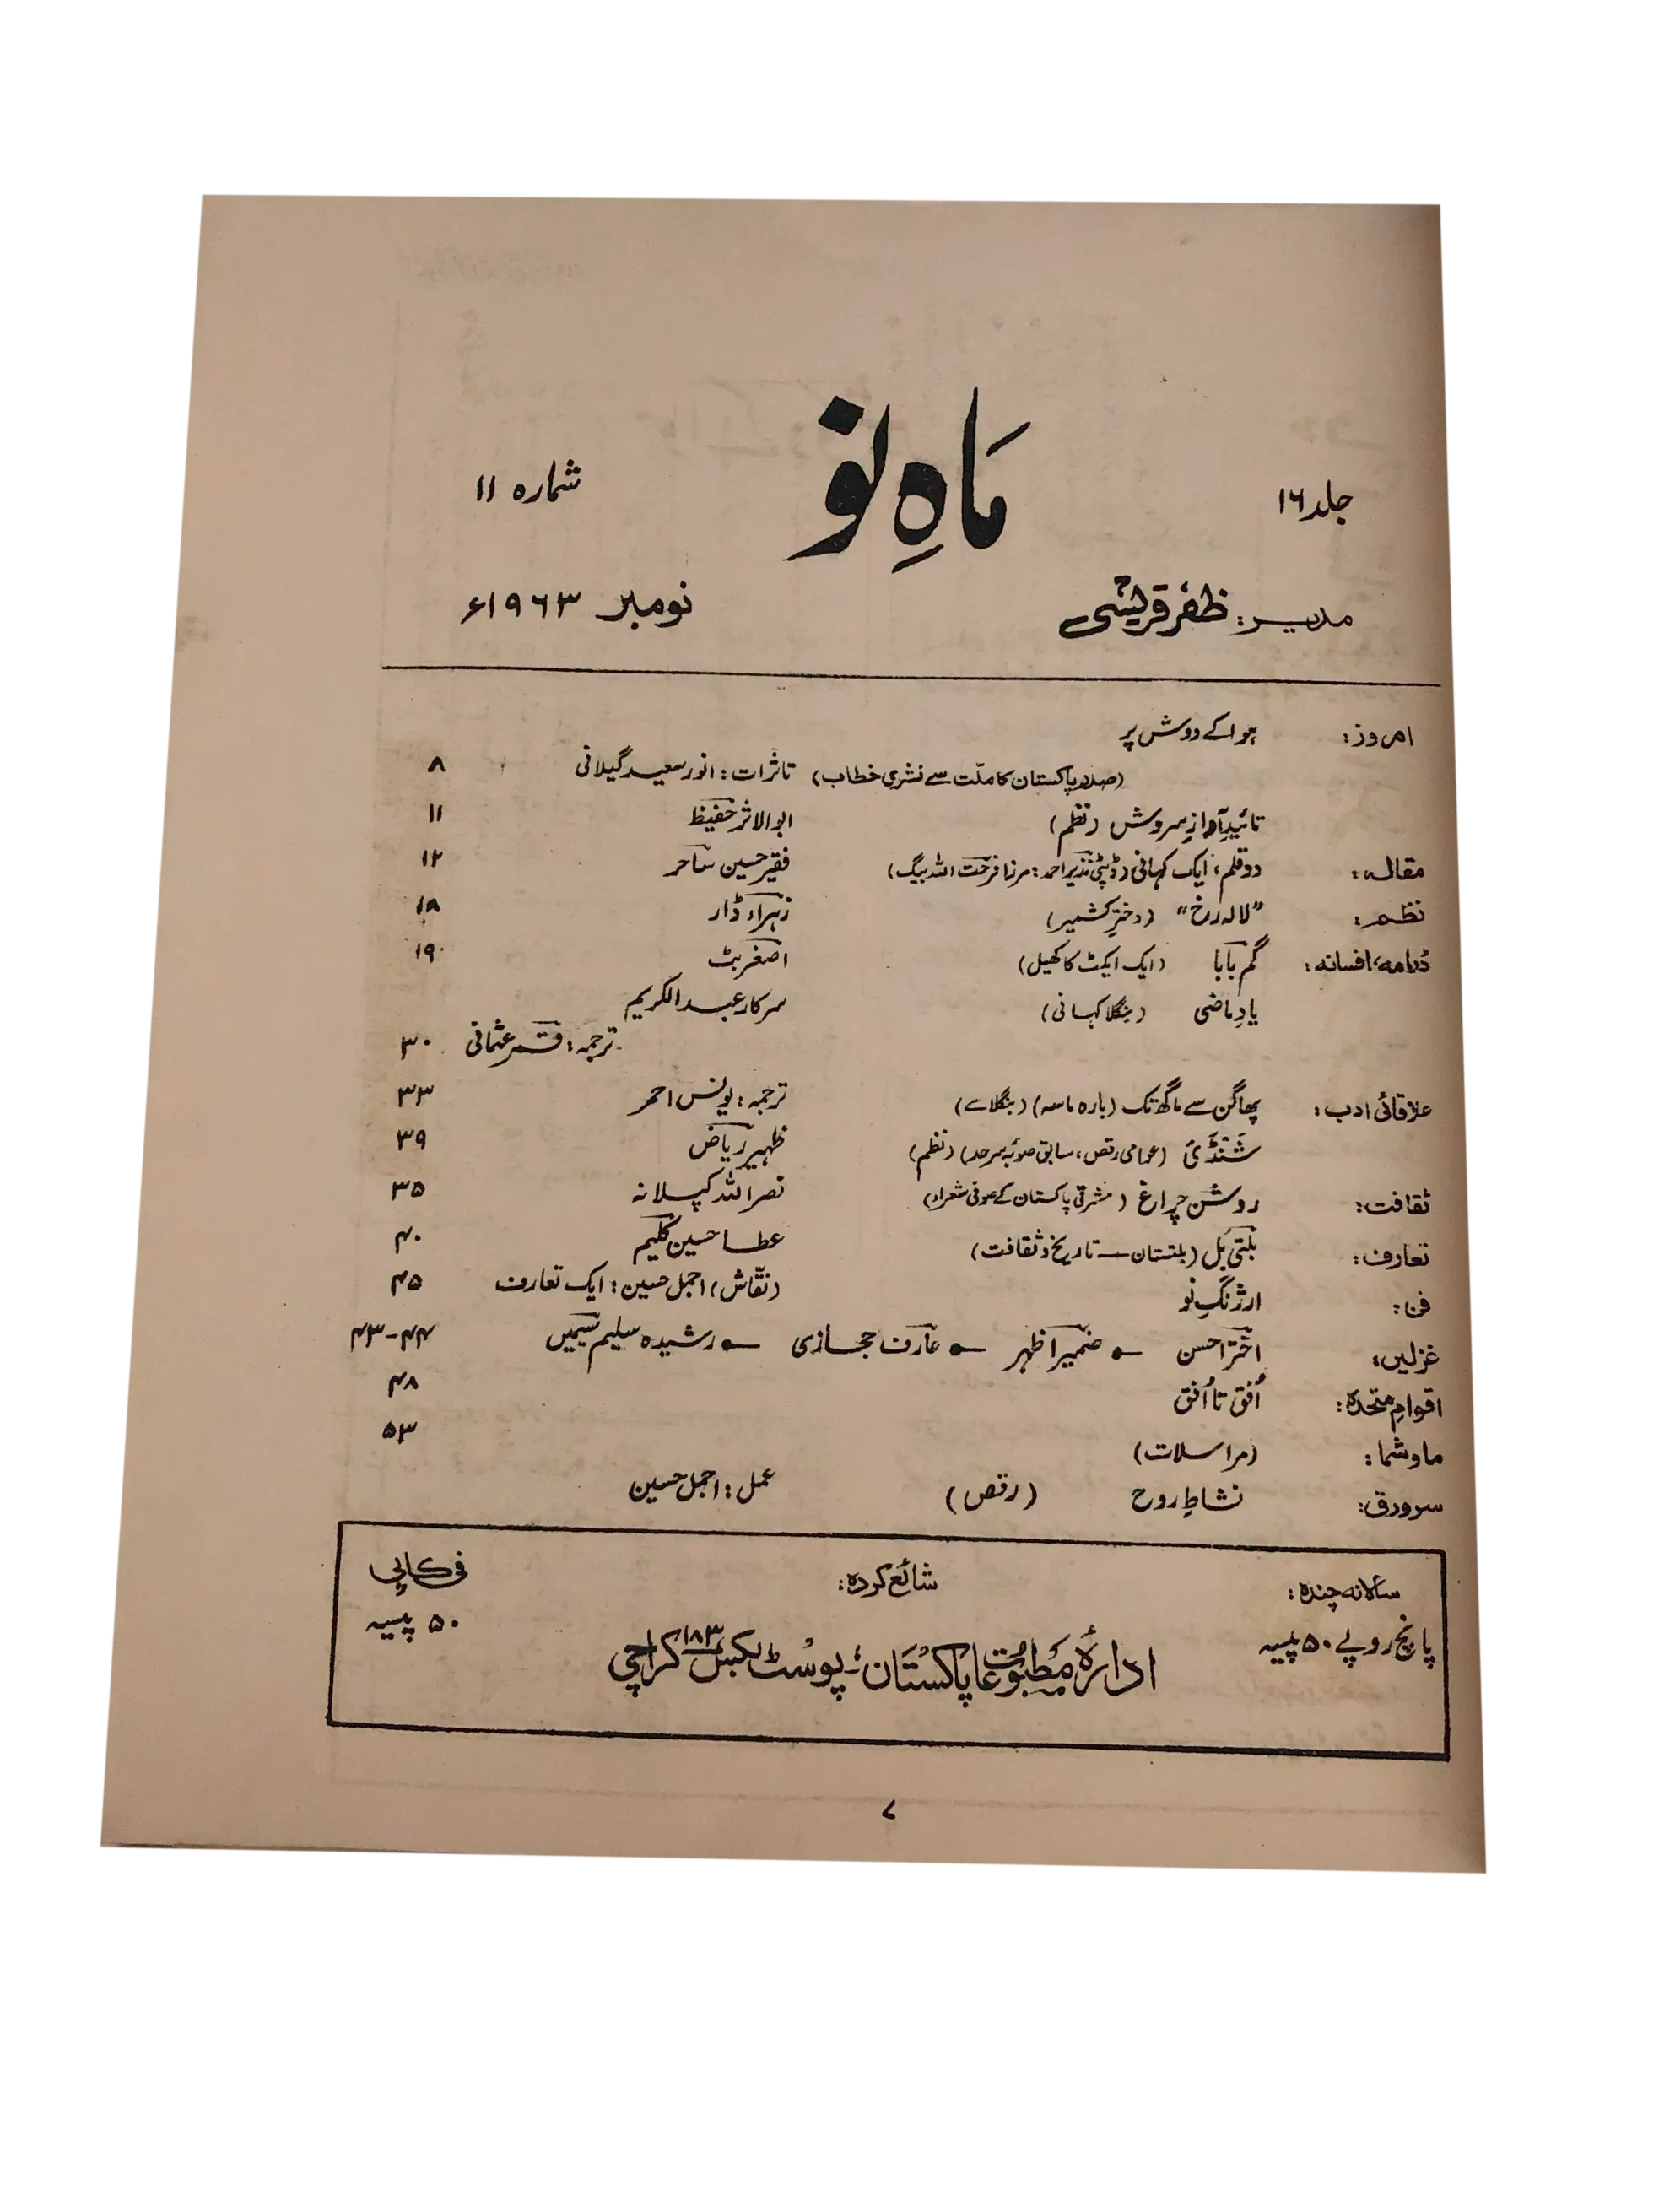 ماہِ نو
جلد ۱۶ شمارہ ۱۱
مدیر: ظفر قریشی نومبر ۱۹۶۳ء
امروز: ہوا کے دوش پر
(صدر پاکستان کا ملّت سے نشری خطاب) تاثرات: انور سعید گیلانی ۸
تائیدِ آوازِ سروش (نظم) ابوالاثر حفیظ ۱۱
مقالہ: دو قلم، ایک کہانی (ڈپٹی نذیر احمد: مرزا فرحت اللہ بیگ) فقیر حسین ساحر ۱۲
نظم: "لالہ رخ" (دخترِ کشمیر) زہراء ڈار ۱۸
ڈرامہ، افسانہ: گم بابا (ایک ایکٹ کا کھیل) اصغر بٹ ۱۹
یادِ ماضی (بنگلا کہانی) سرکار عبدالکریم
ترجمہ: قمر عثمانی ۳۰
علاقائی ادب: پھاگن سے ماگھ تک (بارہ ماسہ) (بنگلا سے) ترجمہ: یونس احمر ۳۳
شَنْڈَئ (عوامی رقص، سابق صوبۂ سرحد) (نظم) ظہیر ریاض ۳۹
ثقافت: روشن چراغ (مشرقی پاکستان کے صوفی شعراء) نصر اللہ کپلانہ ۳۵
تعارف: بلتی یُل (بلتستان — تاریخ و ثقافت) عطا حسین کلیم ۴۰
فن: ارژنگِ نو (نقّاش) اجمل حسین: ایک تعارف ۴۵
غزلیں: اختر احسن • ضمیر اظہر • عارف حجازی • رشیدہ سلیم سیمیں ۴۳-۴۴
اقوامِ متحدہ: اُفق تا اُفق ۴۸
ما و شما: (مراسلات) ۵۳
سرورق: نشاطِ روح (رقص) عمل: اجمل حسین
سالانہ چندہ: شائع کردہ: فی کاپی
پانچ روپے ۵۰ پیسہ ادارۂ مطبوعات پاکستان، پوسٹ بکس ۱۸۳ کراچی ۵۰ پیسہ
۷